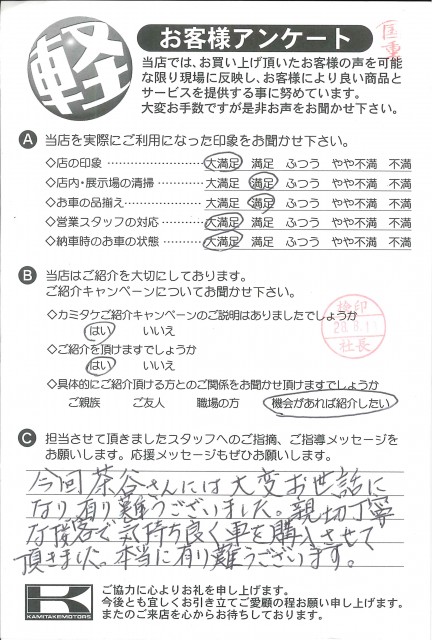 軽
お客様アンケート
当店では、お買い上げ頂いたお客様の声を可能
な限り現場に反映し、お客様により良い商品と
サービスを提供する事に努めています。
大変お手数ですが是非お声をお聞かせ下さい。
A 当店を実際にご利用になった印象をお聞かせ下さい。
◇店の印象 …………………… 大満足 満足 ふつう やや不満 不満
◇店内・展示場の清掃 ………… 大満足 満足 ふつう やや不満 不満
◇お車の品揃え ………………… 大満足 満足 ふつう やや不満 不満
◇営業スタッフの対応 ………… 大満足 満足 ふつう やや不満 不満
◇納車時のお車の状態 ………… 大満足 満足 ふつう やや不満 不満
B 当店はご紹介を大切にしております。
ご紹介キャンペーンについてお聞かせ下さい。
◇カミタケご紹介キャンペーンのご説明はありましたでしょうか
はい いいえ
◇ご紹介を頂けますでしょうか
はい いいえ
◇具体的にご紹介頂ける方とのご関係をお聞かせ頂けますでしょうか
ご親族 ご友人 職場の方 機会があれば紹介したい
検印
社長
C 担当させて頂きましたスタッフへのご指摘、ご指導メッセージを
お願いします。応援メッセージもぜひお願いします。
今回茶谷さんには大変お世話に
なり有り難うございました。親切丁寧
な接客で気持ち良く車を購入させて
頂きました。本当に有り難うございます。
K
KAMITAKEMOTORS
ご協力に心よりお礼を申し上げます。
今後とも宜しくお引き立てご愛顧の程お願い申し上げます。
またのご来店を心からお待ちしております。